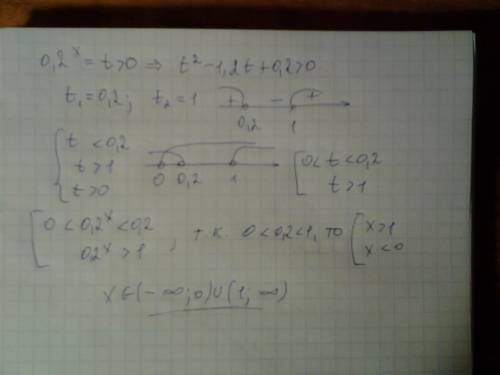 0,2ˣ = t > 0 ⇒ t² − 1,2t + 0,2 > 0
t₁ = 0,2; t₂ = 1 + − +
0,2 1
{ t < 0,2
t > 1
t > 0
0 0,2 1
[ 0 < t < 0,2
t > 1
[ 0 < 0,2ˣ < 0,2
02ˣ > 1
, т.к. 0 < 0,2 < 1, то [ x > 1
x < 0
x ∈ (−∞; 0) ∪ (1; ∞)